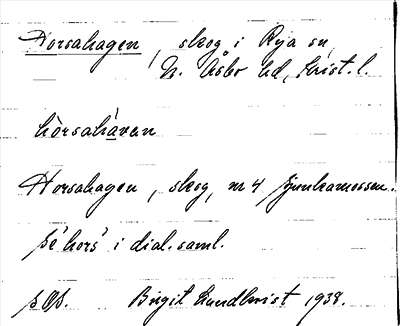 Horsahagen, skog i Rya sn
N. Åsbo hd, Krist. l.
hòrsahávan
Horsahagen, skog, m 4
se 'hors' i dial. saml.
Birgit Lundkvist 1938.